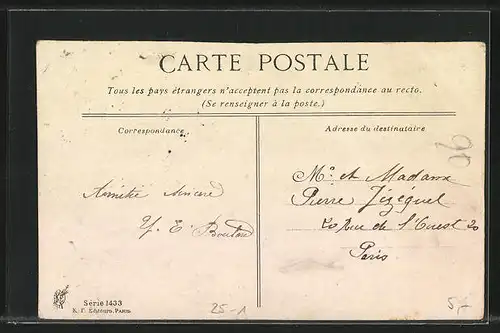 CARTE POSTALE
Tous les pays étrangers n'acceptent pas la correspondance au recto.
(Se renseigner à la poste.)
Correspondance
Adresse du destinataire
Amitié sincère
Y. E. Boutard
Mr et Madame
Pierre Jézéquel
20 Rue de l'Ouest 20
Paris
Série 1433
K. F. Editeurs, PARIS
90
25-
5,-